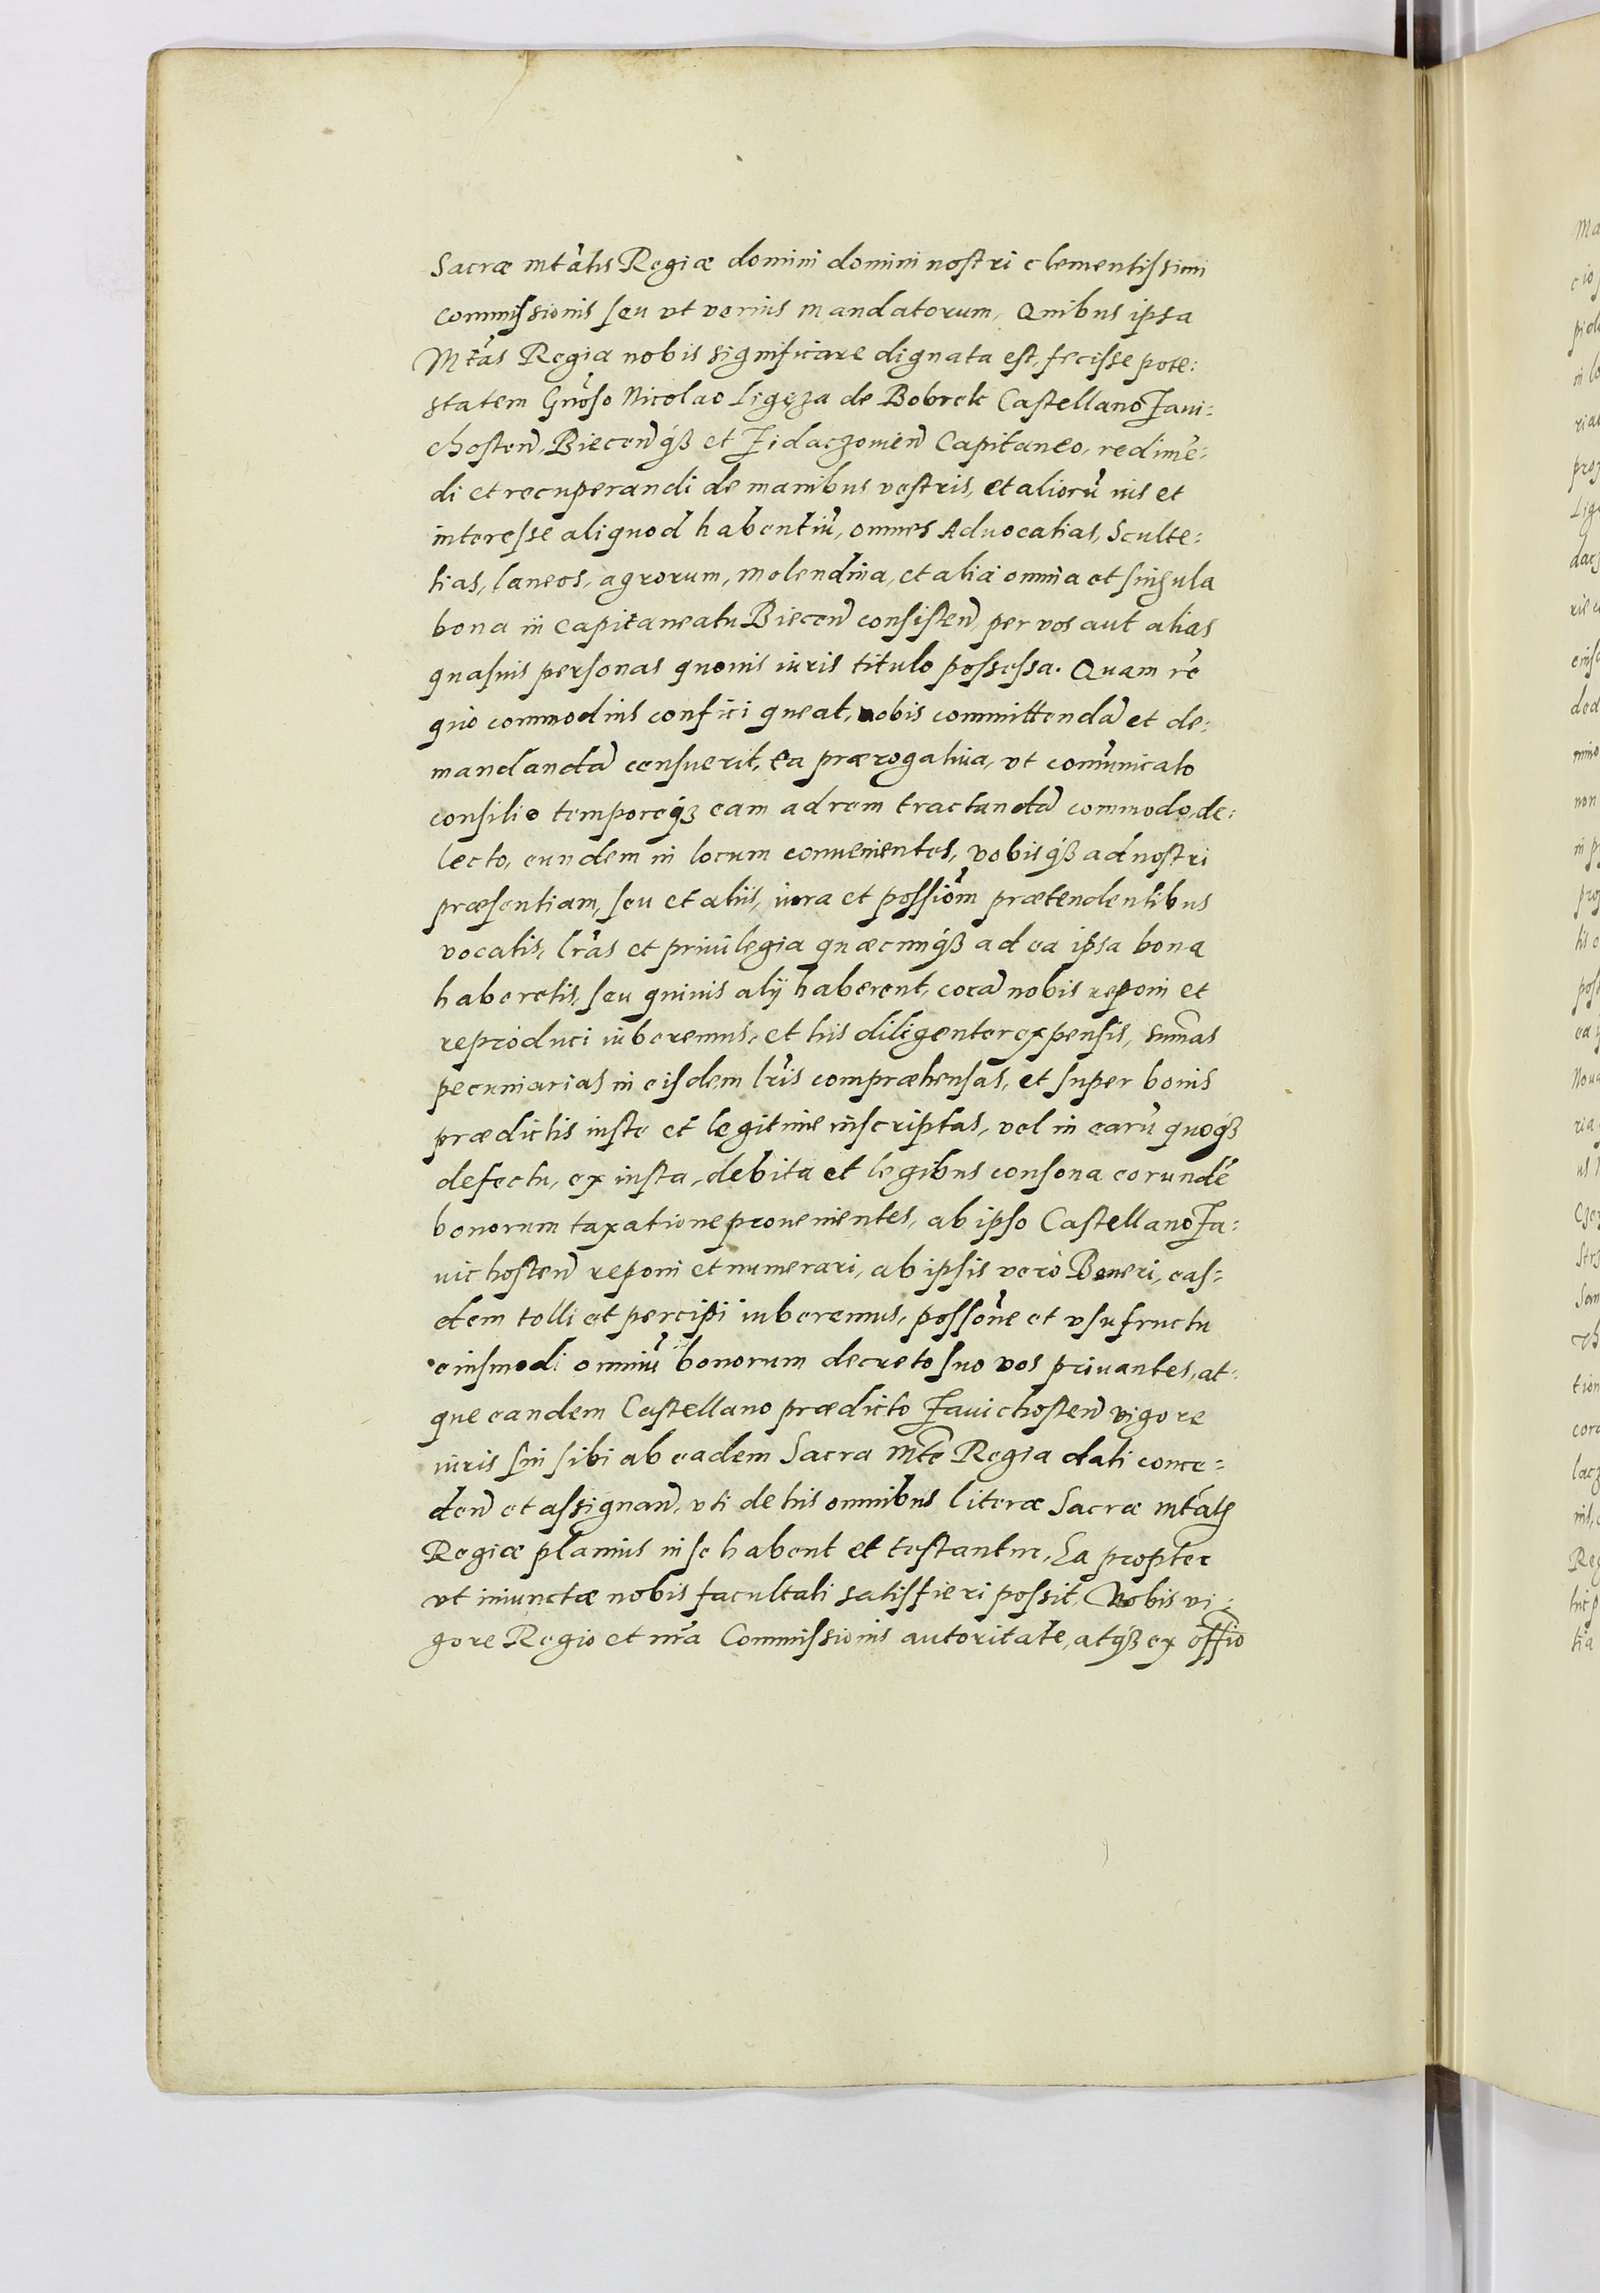 Sacræ mtātis Regiæ domini domini nostri clementissimi
commissionis seu vt verius mandatorum, Quibus ipsa
Mtās Regia nobis significare dignata est, fecisse pote:
statem Gnōso Nicolao Ligęza de Bobrek Castellano Zaui:
chosten̄, Biecen̄ q́ꝫ et Zidaczouien̄ Capitaneo, redimē:
di et recuperandi de manibus vestris, et aliorū ius et
interesse aliquod habentiū, omnes Aduocatias, Sculte:
tias, laneos, agrorum, molendina, et alia omnia et singula
bona in Capitaneatu Biecen̄ consisten̄ per vos aut alias
quasuis personas quouis iuris titulo possessa. Quam rē
quò commodius confici queat, nobis committendā et de:
mandandā censuerit, ea prærogatiua, vt comūnicato
consilio temporeq́ꝫ eam ad rem tractandā commodo, de:
lecto, eundem in locum conuenientes, vobisq́ꝫ ad nostri
præsentiam, seu et aliis, iura et possiōm prætendentibus
vocatis, lrās et priuilegia quæcunq́ꝫ ad ea ipsa bona
haberetis, seu quiuis alÿ haberent, corā nobis reponi et
reproduci iuberemus, et his diligenter expensis, sum̄as
pecuniarias in eisdem lrīs compræhensas, et super bonis
prædictis iuste et legitime inscriptas, vel in earū quoq́ꝫ
defectu, ex iusta, debita et legibus consona eorundē
bonorum taxatione prouenientes, ab ipso Castellano Za:
uichosten̄ reponi et numerari, ab ipsis verò Boneri, eas:
dem tolli et percipi iuberemus, possōne et vsufructu
eiusmodi omniū bonorum decreto suo vos priuantes, at:
que eandem Castellano prædicto Zauichosten̄ vigore
iuris sui sibi ab eadem Sacra Mtē Regia dati conce:
den̄ et assignan̄, vti de his omnibus literæ Sacræ Mtātis
Regiæ planius in se habent et testantur, Ea propter
vt iniunctæ nobis facultati satisfieri possit, Vobis vi:
gore Regio et nrā Commissionis autoritate, atq́ꝫ ex offio